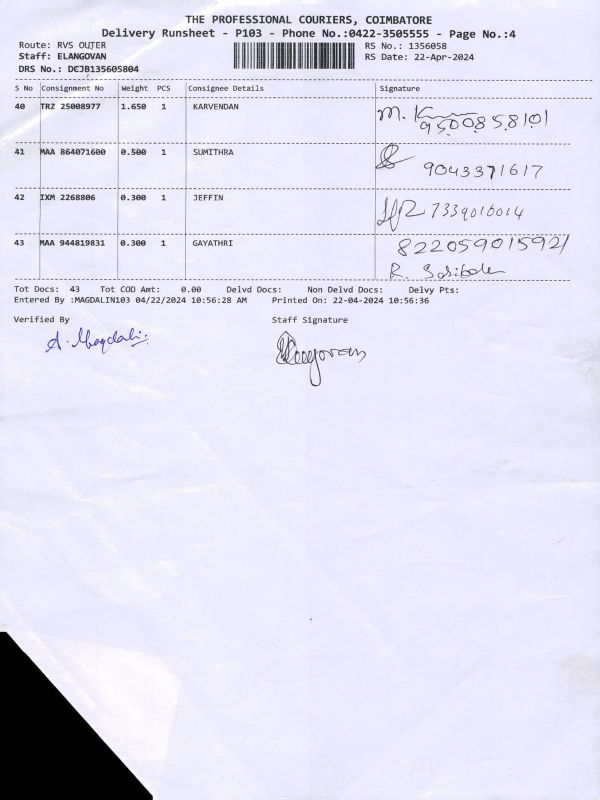 THE PROFESSIONAL COURIERS, COIMBATORE
Delivery Runsheet - P103 - Phone No.:0422-3505555 - Page No.:4
Route: RVS OUTER
RS No.: 1356058
Staff: ELANGOVAN
RS Date: 22-Apr-2024
DRS No.: DCJB135605804
S No Consignment No Weight PCS Consignee Details Signature
40 TRZ 25008977 1.650 1 KARVENDAN M.
9500858101
41 MAA 864071600 0.500 1 SUMITHRA 9043371617
42 IXM 2268806 0.300 1 JEFFIN 7339010014
43 MAA 944819831 0.300 1 GAYATHRI 82205901592/
R.
Tot Docs: 43 Tot COD Amt: 0.00 Delvd Docs: Non Delvd Docs: Delvy Pts:
Entered By :MAGDALIN103 04/22/2024 10:56:28 AM Printed On: 22-04-2024 10:56:36
Verified By Staff Signature
A. Magdali Elangovan